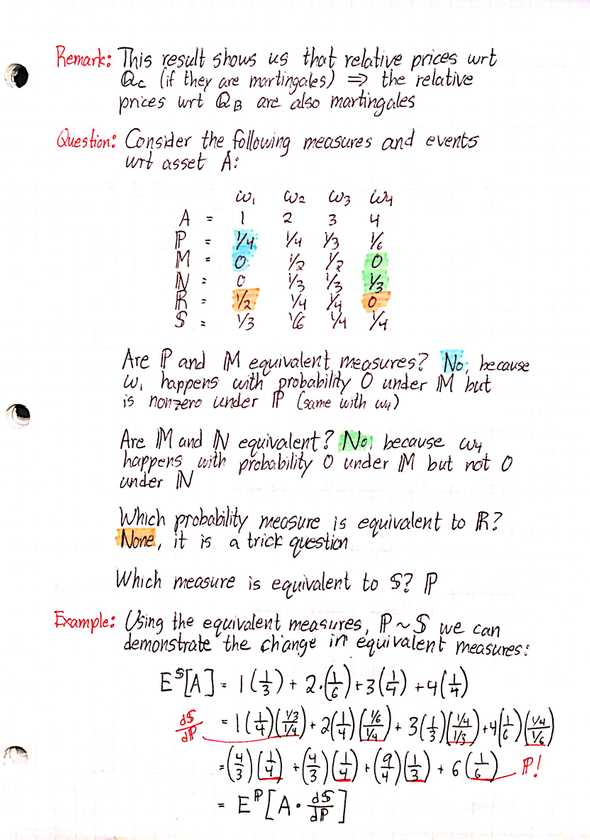 Remark: This result shows us that relative prices wrt
Qc (if they are martingales) ⇒ the relative
prices wrt QB are also martingales
Question: Consider the following measures and events
wrt asset A:
ω₁ ω₂ ω₃ ω₄
A = 1 2 3 4
ℙ = 1/4 1/4 1/3 1/6
𝕄 = 0 1/2 1/2 0
ℕ = 0 1/3 1/3 1/3
ℝ = 1/2 1/4 1/4 0
𝕊 = 1/3 1/6 1/4 1/4
Are ℙ and 𝕄 equivalent measures? No, because
ω₁ happens with probability 0 under 𝕄 but
is nonzero under ℙ (same with ω₄)
Are 𝕄 and ℕ equivalent? No, because ω₄
happens with probability 0 under 𝕄 but not 0
under ℕ
Which probability measure is equivalent to ℝ?
None, it is a trick question
Which measure is equivalent to 𝕊? ℙ
Example: Using the equivalent measures, ℙ ~ 𝕊 we can
demonstrate the change in equivalent measures:
E^𝕊[A] = 1(1/3) + 2·(1/6) + 3(1/4) + 4(1/4)
d𝕊/dℙ = 1(1/4)((1/3)/(1/4)) + 2(1/4)((1/6)/(1/4)) + 3(1/3)((1/4)/(1/3)) + 4(1/6)((1/4)/(1/6))
= (4/3)(1/4) + (4/3)(1/4) + (9/4)(1/3) + 6(1/6) ℙ!
= E^ℙ[A · d𝕊/dℙ]